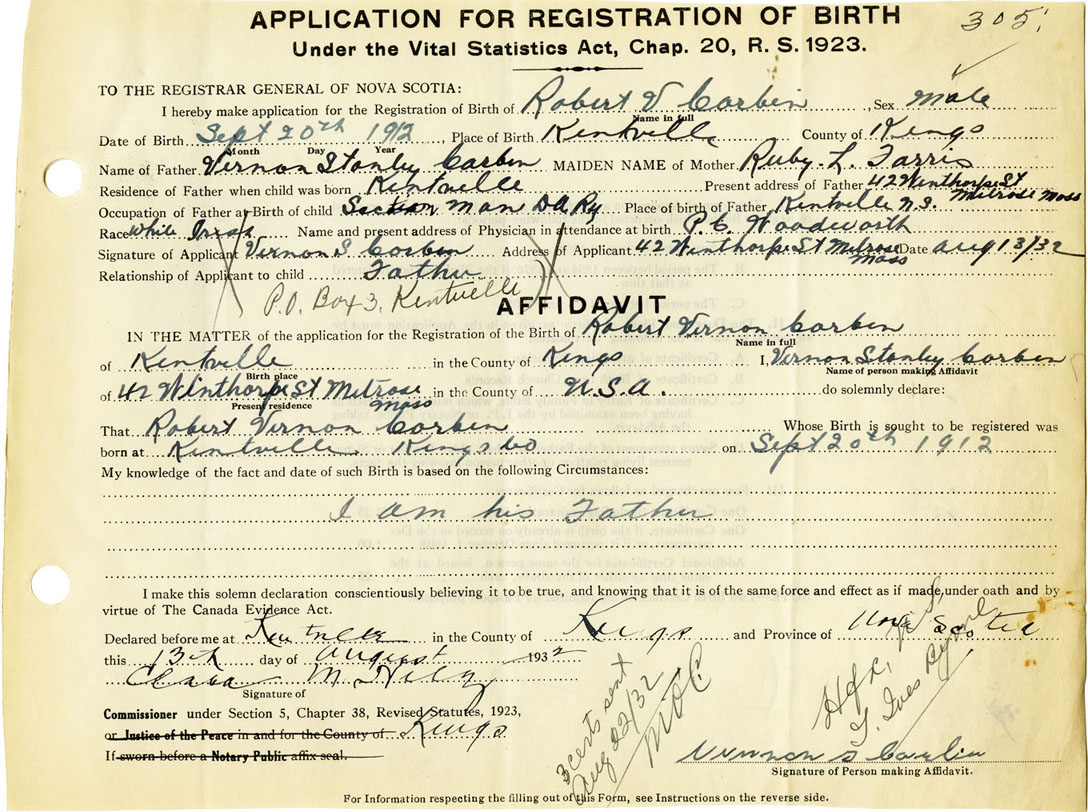 APPLICATION FOR REGISTRATION OF BIRTH
305.
Under the Vital Statistics Act, Chap. 20, R. S. 1923.
TO THE REGISTRAR GENERAL OF NOVA SCOTIA:
I hereby make application for the Registration of Birth of Robert V Corbin, Sex Male
Name in full
Date of Birth Sept 20th 1912, Place of Birth Kentville County of Kings
Month Day Year
Name of Father Vernon Stanly Corbin MAIDEN NAME of Mother Ruby L. Tarris
Residence of Father when child was born Kentville Present address of Father 42 Winthorpe St Melrose Mass
Occupation of Father at Birth of child Section Man D A Ry Place of birth of Father Kentville N.S.
Race White Irish Name and present address of Physician in attendance at birth P. C. Woodworth
Signature of Applicant Vernon S Corbin Address of Applicant 42 Winthorpe St Melrose Mass Date Aug 13/32
Relationship of Applicant to child Father
P.O. Box 3, Kentville
AFFIDAVIT
IN THE MATTER of the application for the Registration of the Birth of Robert Vernon Corbin
Name in full
of Kentville in the County of Kings I, Vernon Stanley Corbin
Birth place Name of person making Affidavit
of 42 Winthorpe St Melrose Mass in the County of U.S.A. do solemnly declare:
Present residence
That Robert Vernon Corbin Whose Birth is sought to be registered was
born at Kentville Kings Co on Sept 20th 1912
My knowledge of the fact and date of such Birth is based on the following Circumstances:
I am his Father
I make this solemn declaration conscientiously believing it to be true, and knowing that it is of the same force and effect as if made under oath and by
virtue of The Canada Evidence Act.
Declared before me at Kentville in the County of Kings and Province of Nova Scotia
this 13th day of August 1932
Clara M.
Signature of
Commissioner under Section 5, Chapter 38, Revised Statutes, 1923,
or Justice of the Peace in and for the County of Kings
If sworn before a Notary Public affix seal.
3 certs sent
Aug 22/32
Hfx,
Vernon S Corbin
Signature of Person making Affidavit.
For Information respecting the filling out of this Form, see Instructions on the reverse side.